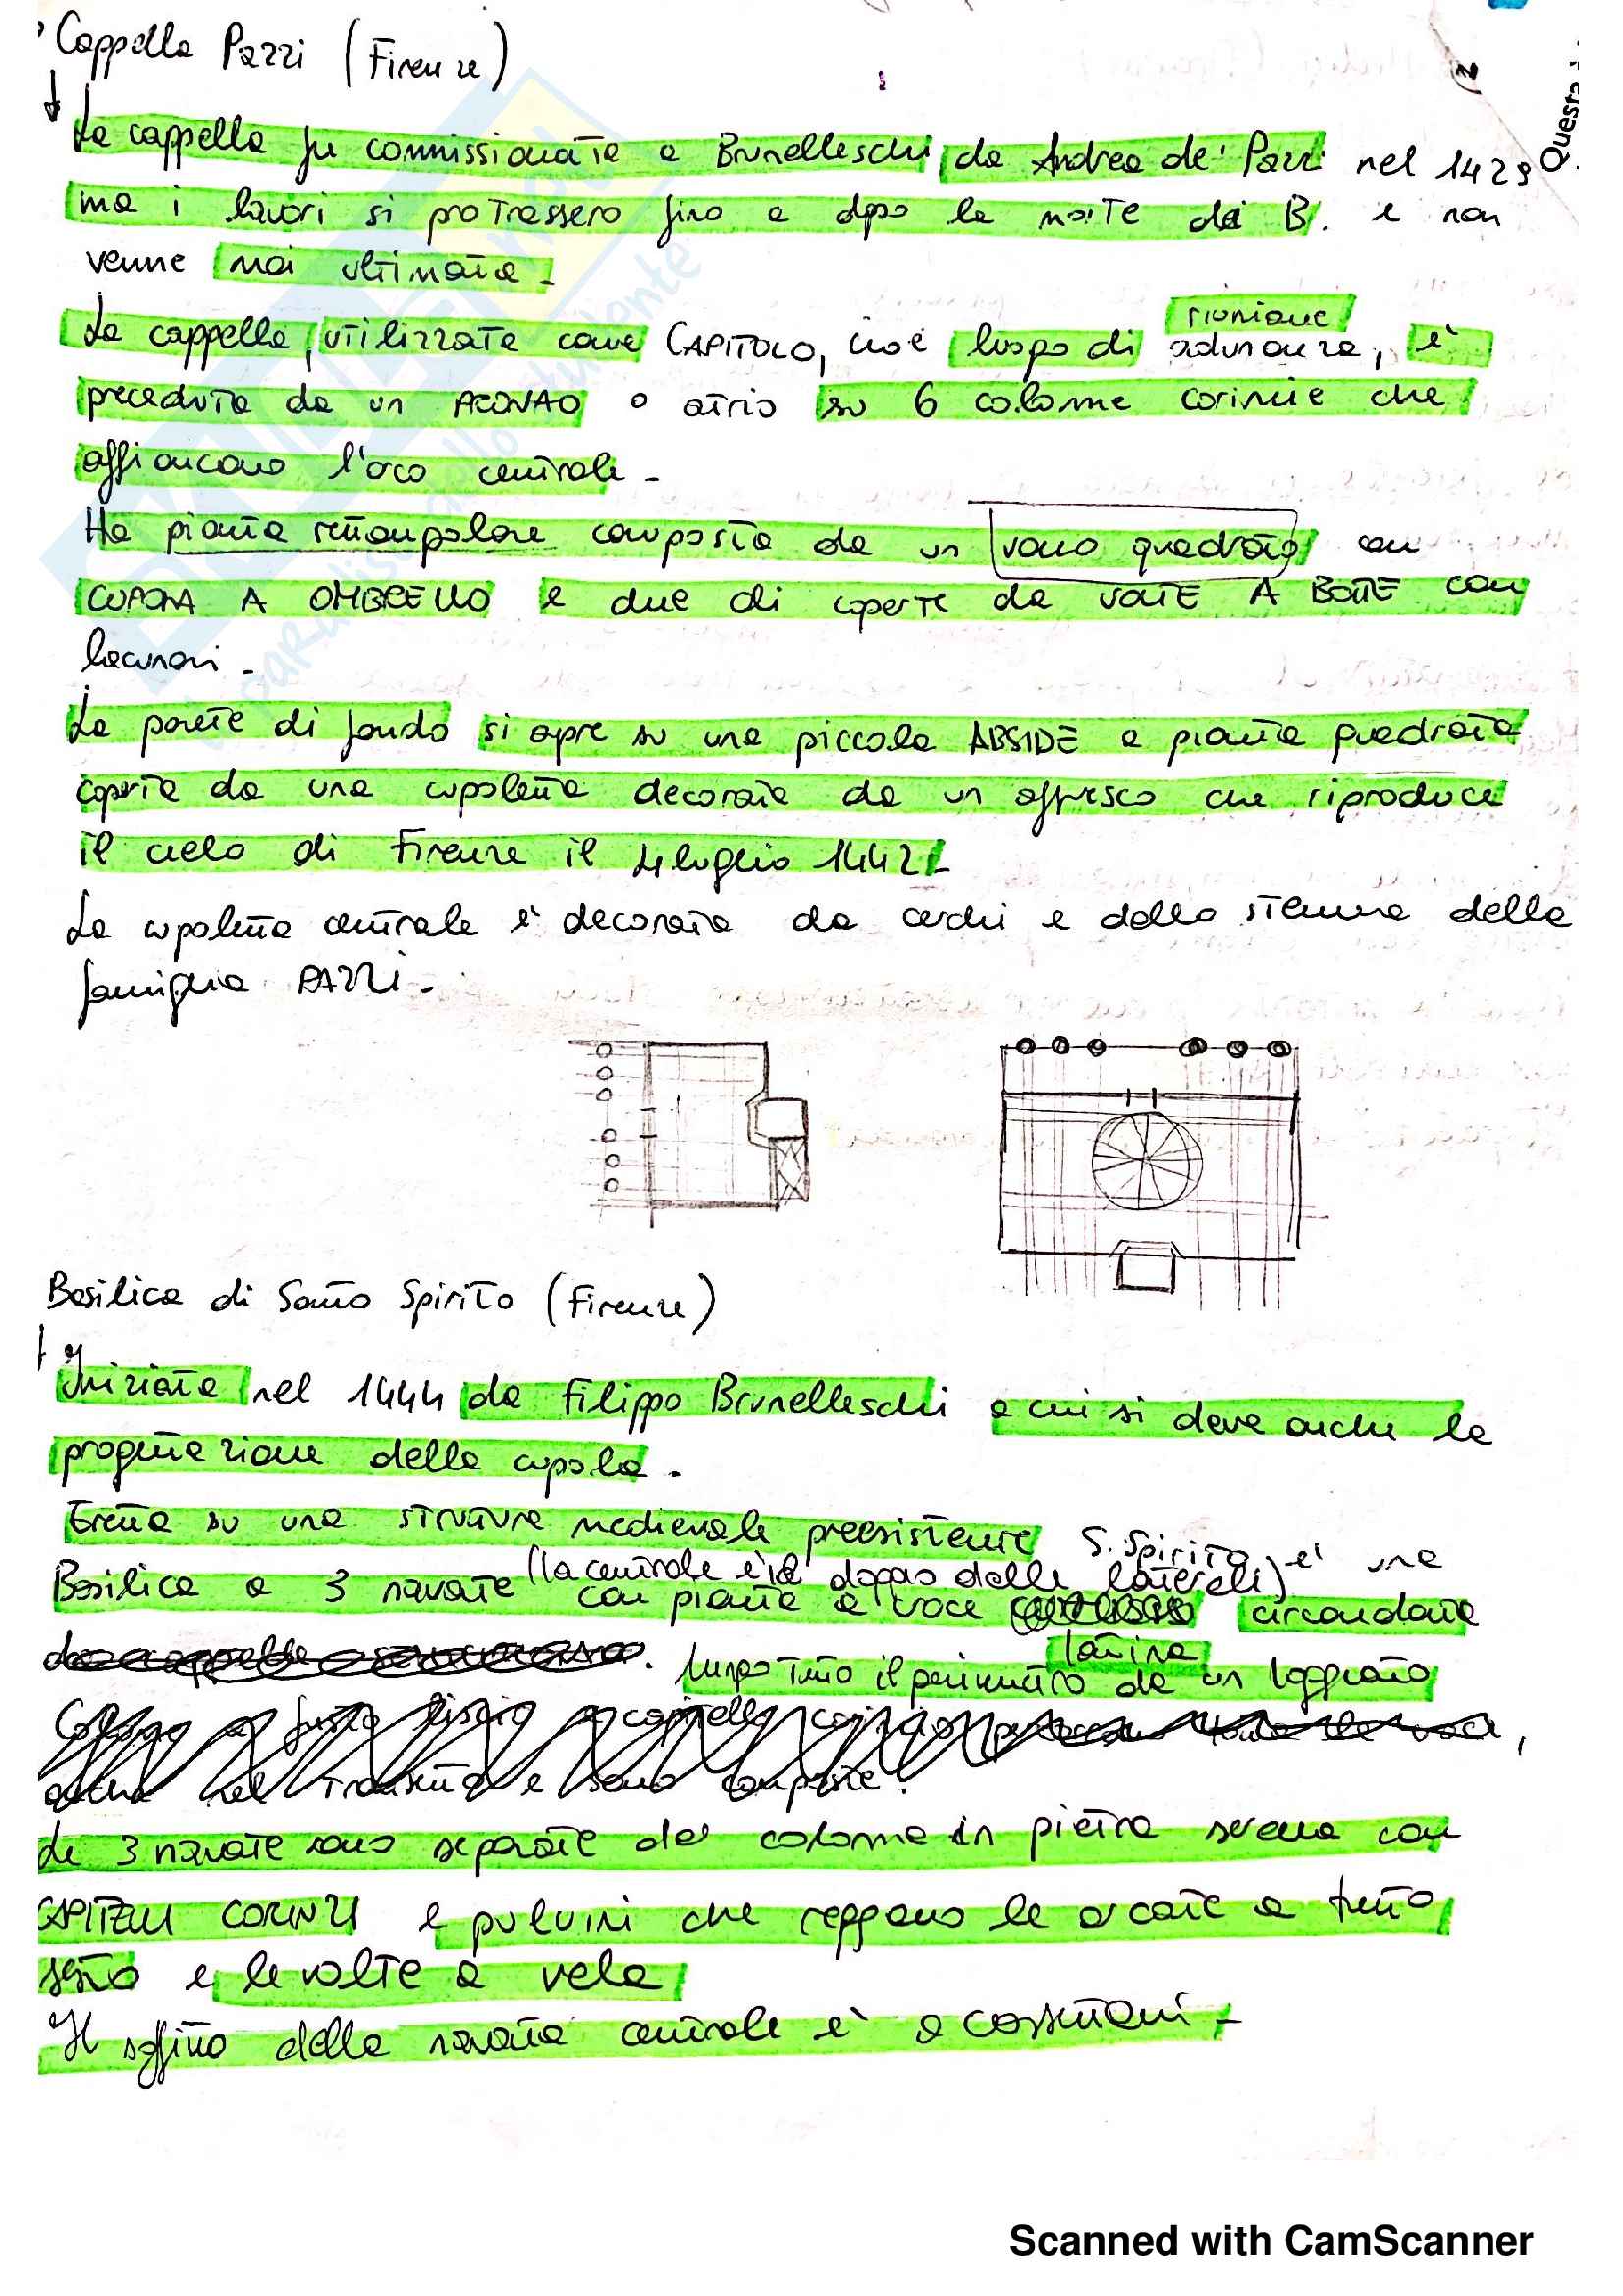 Cappella Pazzi (Firenze)
Questa
La cappella fu commissionata a Brunelleschi da Andrea de' Pazzi nel 1429
ma i lavori si protrassero fino a dopo la morte di B. e non
venne mai ultimata.
riunione
La cappella, utilizzata come CAPITOLO, cioè luogo di adunanza, è
preceduta da un PRONAO o atrio su 6 colonne corinzie che
affiancano l'arco centrale.
Ha pianta rettangolare composta da un vano quadrato con
CUPOLA A OMBRELLO e due ali coperte da VOLTE A BOTTE con
lacunari.
La parete di fondo si apre su una piccola ABSIDE a pianta quadrata
coperta da una cupoletta decorata da un affresco che riproduce
il cielo di Firenze il 4 luglio 1442.
La cupoletta centrale è decorata da cerchi e dallo stemma della
famiglia PAZZI.
Basilica di Santo Spirito (Firenze)
Iniziata nel 1444 da Filippo Brunelleschi a cui si deve anche la
progettazione della cupola.
Eretta su una struttura medievale preesistente S. Spirito è una
(la centrale è il doppio delle laterali)
Basilica a 3 navate con pianta a croce circondata
latina
lungo tutto il perimetro da un loggiato
Colonne a fusto liscio e capitello
anche nel transetto e sono composte.
Le 3 navate sono separate da colonne in pietra serena con
CAPITELLI CORINZI e pulvini che reggono le arcate a tutto
sesto e le volte a vela
Il soffitto della navata centrale è a cassettoni.
Scanned with CamScanner